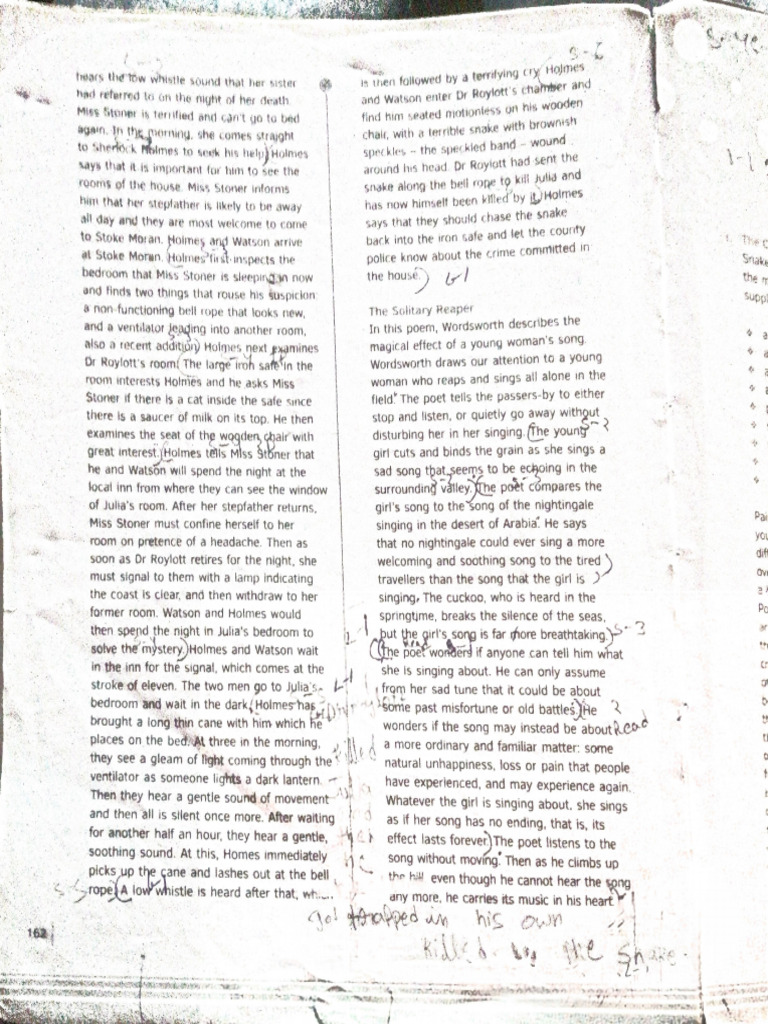 hears the low whistle sound that her sister
had referred to on the night of her death.
Miss Stoner is terrified and can't go to bed
again. In the morning, she comes straight
to Sherlock Holmes to seek his help. Holmes
says that it is important for him to see the
rooms of the house. Miss Stoner informs
him that her stepfather is likely to be away
all day and they are most welcome to come
to Stoke Moran. Holmes and Watson arrive
at Stoke Moran. Holmes first inspects the
bedroom that Miss Stoner is sleeping in now
and finds two things that rouse his suspicion:
a non-functioning bell rope that looks new,
and a ventilator leading into another room,
also a recent addition. Holmes next examines
Dr Roylott's room. The large iron safe in the
room interests Holmes and he asks Miss
Stoner if there is a cat inside the safe since
there is a saucer of milk on its top. He then
examines the seat of the wooden chair with
great interest. Holmes tells Miss Stoner that
he and Watson will spend the night at the
local inn from where they can see the window
of Julia's room. After her stepfather returns,
Miss Stoner must confine herself to her
room on pretence of a headache. Then as
soon as Dr Roylott retires for the night, she
must signal to them with a lamp indicating
the coast is clear, and then withdraw to her
former room. Watson and Holmes would
then spend the night in Julia's bedroom to
solve the mystery. Holmes and Watson wait
in the inn for the signal, which comes at the
stroke of eleven. The two men go to Julia's
bedroom and wait in the dark. Holmes has
brought a long thin cane with him which he
places on the bed. At three in the morning,
they see a gleam of light coming through the
ventilator as someone lights a dark lantern.
Then they hear a gentle sound of movement
and then all is silent once more. After waiting
for another half an hour, they hear a gentle,
soothing sound. At this, Homes immediately
picks up the cane and lashes out at the bell
S-5 rope. A low whistle is heard after that, wh
162
S-6
is then followed by a terrifying cry. Holmes
and Watson enter Dr Roylott's chamber and
find him seated motionless on his wooden
chair, with a terrible snake with brownish
speckles – the speckled band – wound
around his head. Dr Roylott had sent the
snake along the bell rope to kill Julia and
has now himself been killed by it. Holmes
says that they should chase the snake
back into the iron safe and let the county
police know about the crime committed in
the house.
The Solitary Reaper
In this poem, Wordsworth describes the
magical effect of a young woman's song.
Wordsworth draws our attention to a young
woman who reaps and sings all alone in the
field. The poet tells the passers-by to either
stop and listen, or quietly go away without
disturbing her in her singing. The young S-2
girl cuts and binds the grain as she sings a
sad song that seems to be echoing in the
surrounding valley. The poet compares the
girl's song to the song of the nightingale
singing in the desert of Arabia. He says
that no nightingale could ever sing a more
welcoming and soothing song to the tired
travellers than the song that the girl is
singing. The cuckoo, who is heard in the
springtime, breaks the silence of the seas,
but the girl's song is far more breathtaking. S-3
The poet wonders if anyone can tell him what
she is singing about. He can only assume
from her sad tune that it could be about
some past misfortune or old battles. He
wonders if the song may instead be about Read
a more ordinary and familiar matter: some
natural unhappiness, loss or pain that people
have experienced, and may experience again.
Whatever the girl is singing about, she sings
as if her song has no ending, that is, its
effect lasts forever. The poet listens to the
song without moving. Then as he climbs up
the hill even though he cannot hear the song
any more, he carries its music in his heart
got trapped in his own
killed by the snake.
Snake
the m
suppl